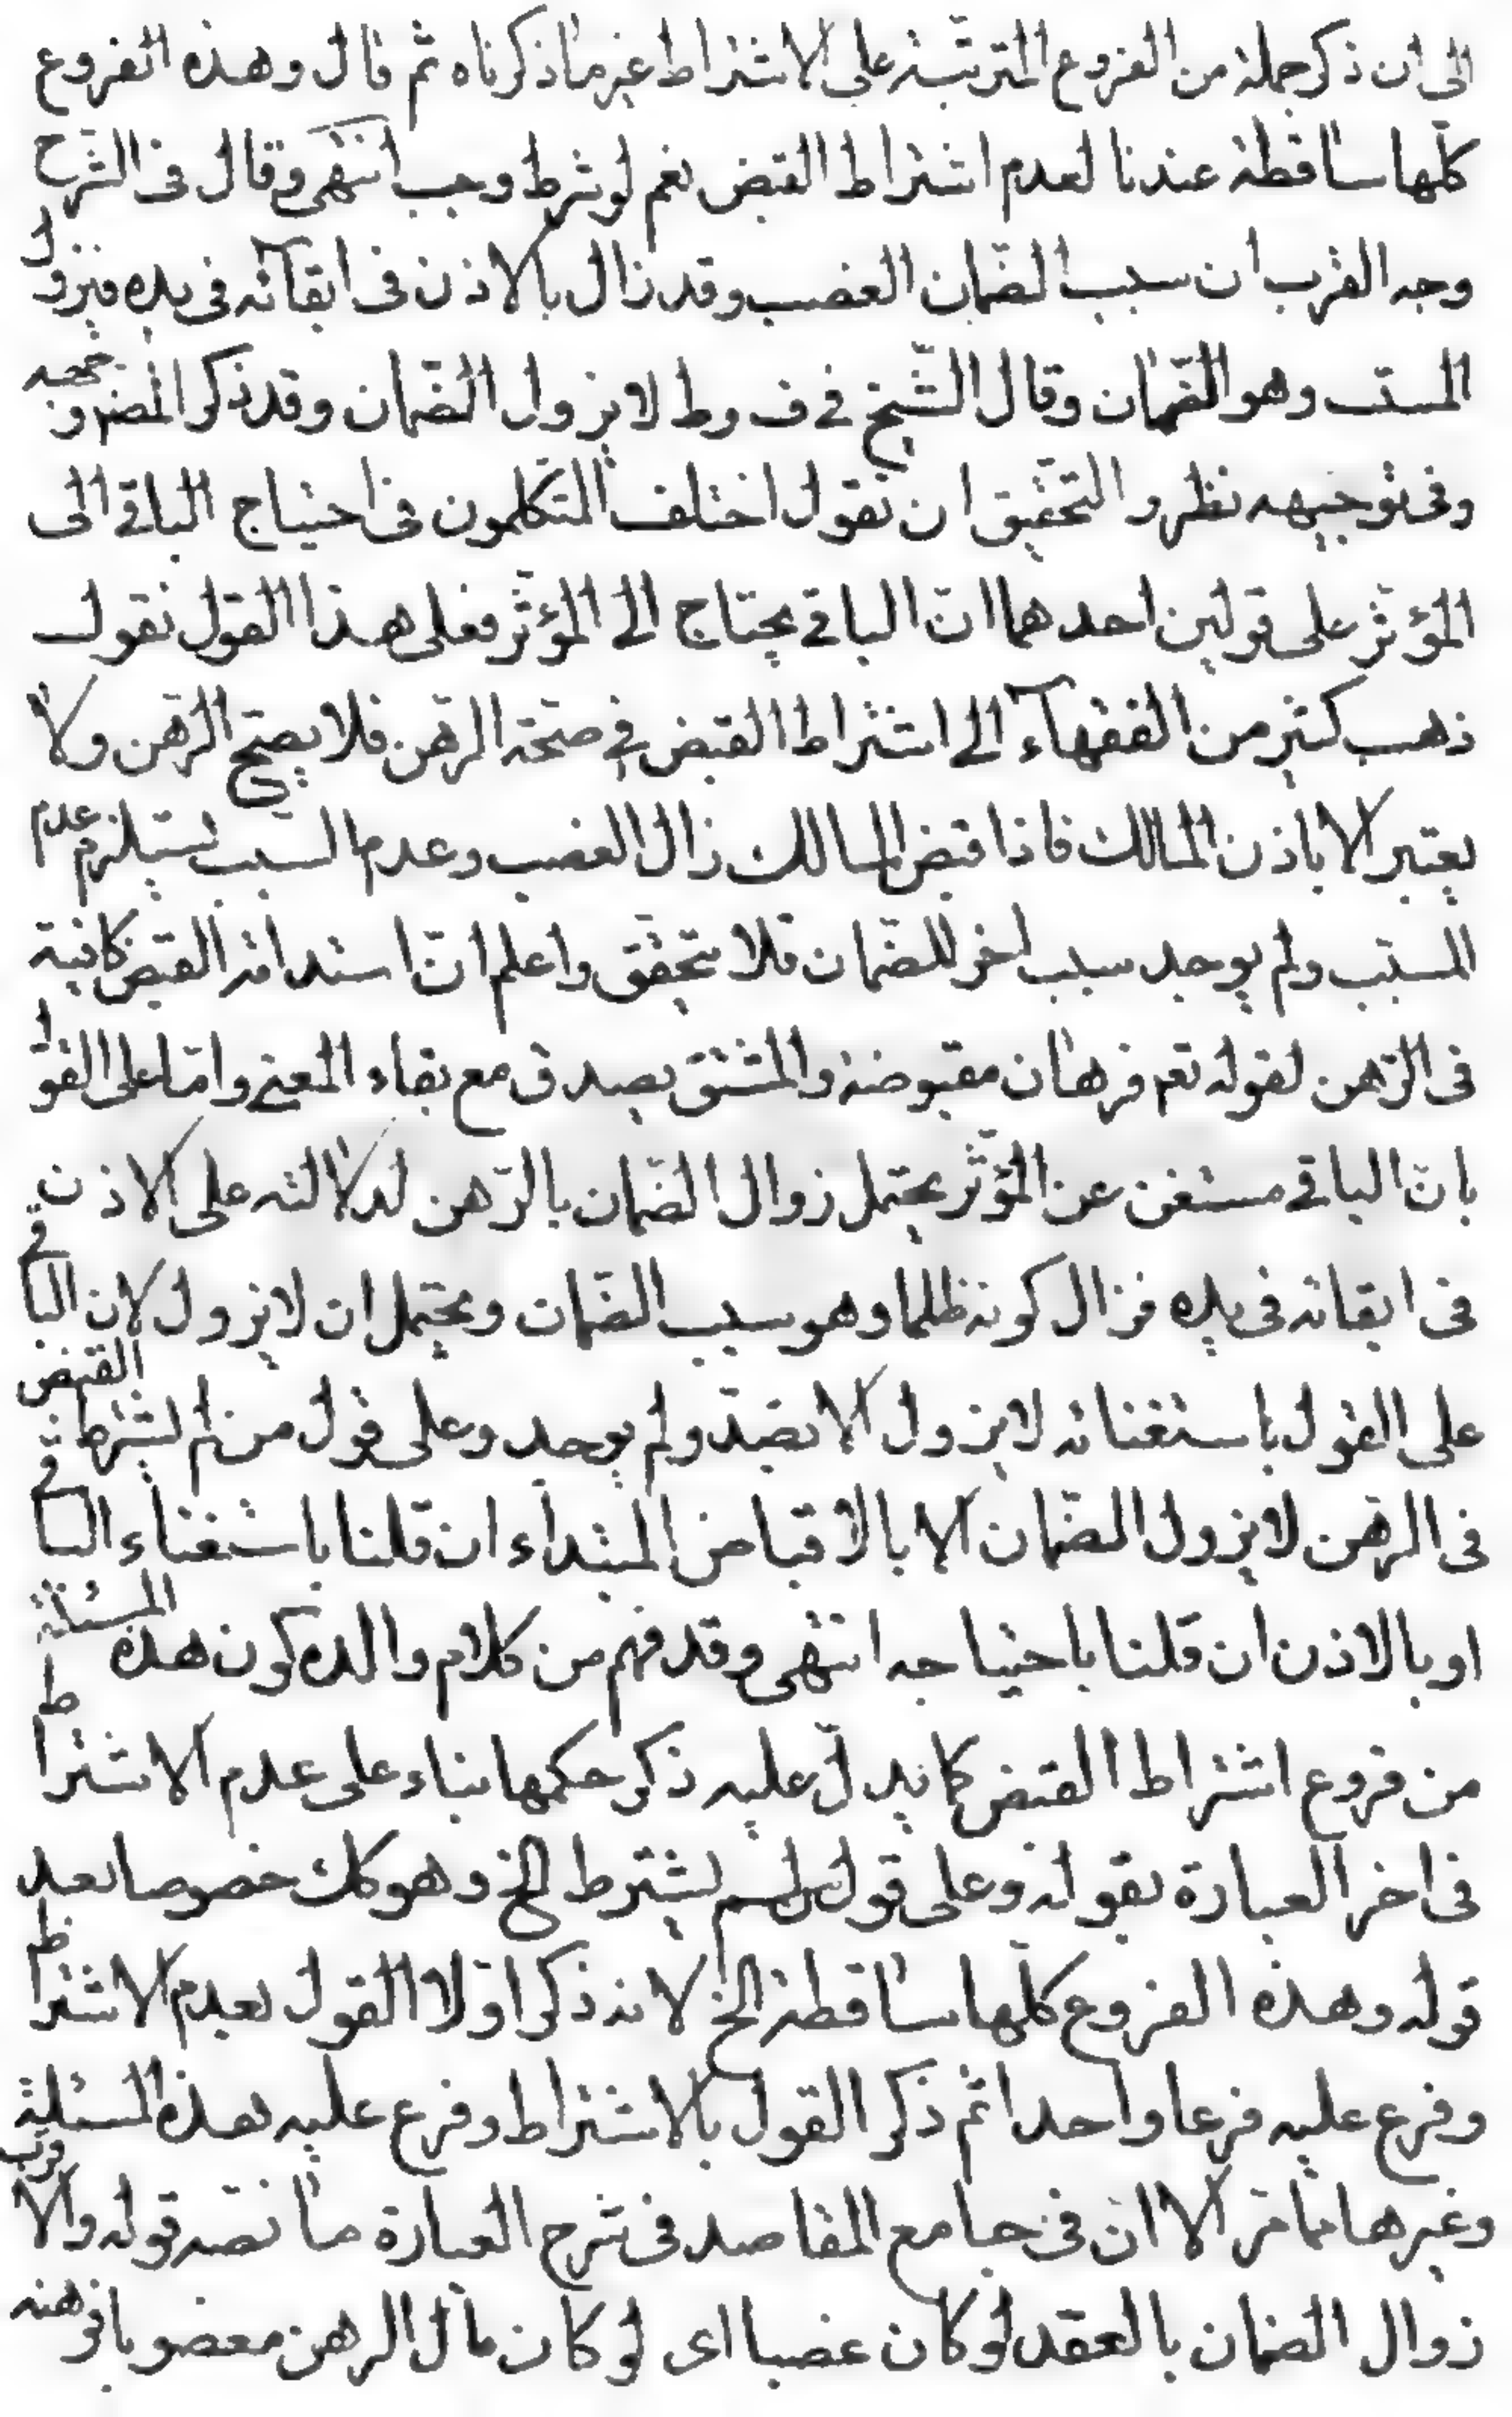 الى ان ذكر جملة من الفروع المترتبة على الاشتراط غير ما ذكرناه ثم قال وهذه الفروع
كلها ساقطة عندنا لعدم اشتراط القبض نعم لو شرط وجب انتهى وقال فى الشرح
وجه القرب ان سبب الضمان الغصب وقد زال بالاذن فى ابقائه فى يده فيزول
المسبب وهو الضمان وقال الشيخ في ف وط لا يزول الضمان وقد ذكر المصنف وجهه
وفى توجيهه نظر والتحقيق ان نقول اختلف المتكلمون فى احتياج الباقي الى
المؤثر على قولين احدهما ان الباقي يحتاج الى المؤثر فعلى هذا القول نقول
ذهب كثير من الفقهاء الى اشتراط القبض في صحة الرهن فلا يصح الرهن ولا
يعتبر الا باذن المالك فاذا قبض المالك زال الغصب وعدم السبب يستلزم عدم
المسبب ولم يوجد سبب اخر للضمان فلا يتحقق واعلم ان استدامة القبض كافية
فى الرهن لقوله تعم فرهان مقبوضة والمشتق يصدق مع بقاء المعنى واما على القول
بان الباقي مستغن عن المؤثر يحتمل زوال الضمان بالرهن لدلالته على الاذن
فى ابقائه فى يده فزال كونه ظلما وهو سبب الضمان ويحتمل ان لا يزول لان الباقي
على القول باستغنائه لا يزول الا بضد ولم يوجد وعلى قول من لم يشترط القبض
فى الرهن لا يزول الضمان الا بالاقباض المبتداء ان قلنا باستغناء الباقي
او بالاذن ان قلنا باحتياجه انتهى وقد فهم من كلام والده كون هذه المسئلة
من فروع اشتراط القبض كما يدل عليه ذكر حكمها بناء على عدم الاشتراط
فى اخر العبارة بقوله وعلى قول من لم يشترط الخ وهو كك خصوصا بعد
قوله وهذه الفروع كلها ساقطة الخ لانه ذكر اولا القول بعدم الاشتراط
وفرع عليه فرعا واحدا ثم ذكر القول بالاشتراط وفرع عليه هذه المسئلة
وغيرها مما مر الا ان فى جامع المقاصد فى شرح العبارة ما نصه قوله والاقرب
زوال الضمان بالعقد لو كان غصبا اى لو كان مال الرهن مغصوبا فرهنه